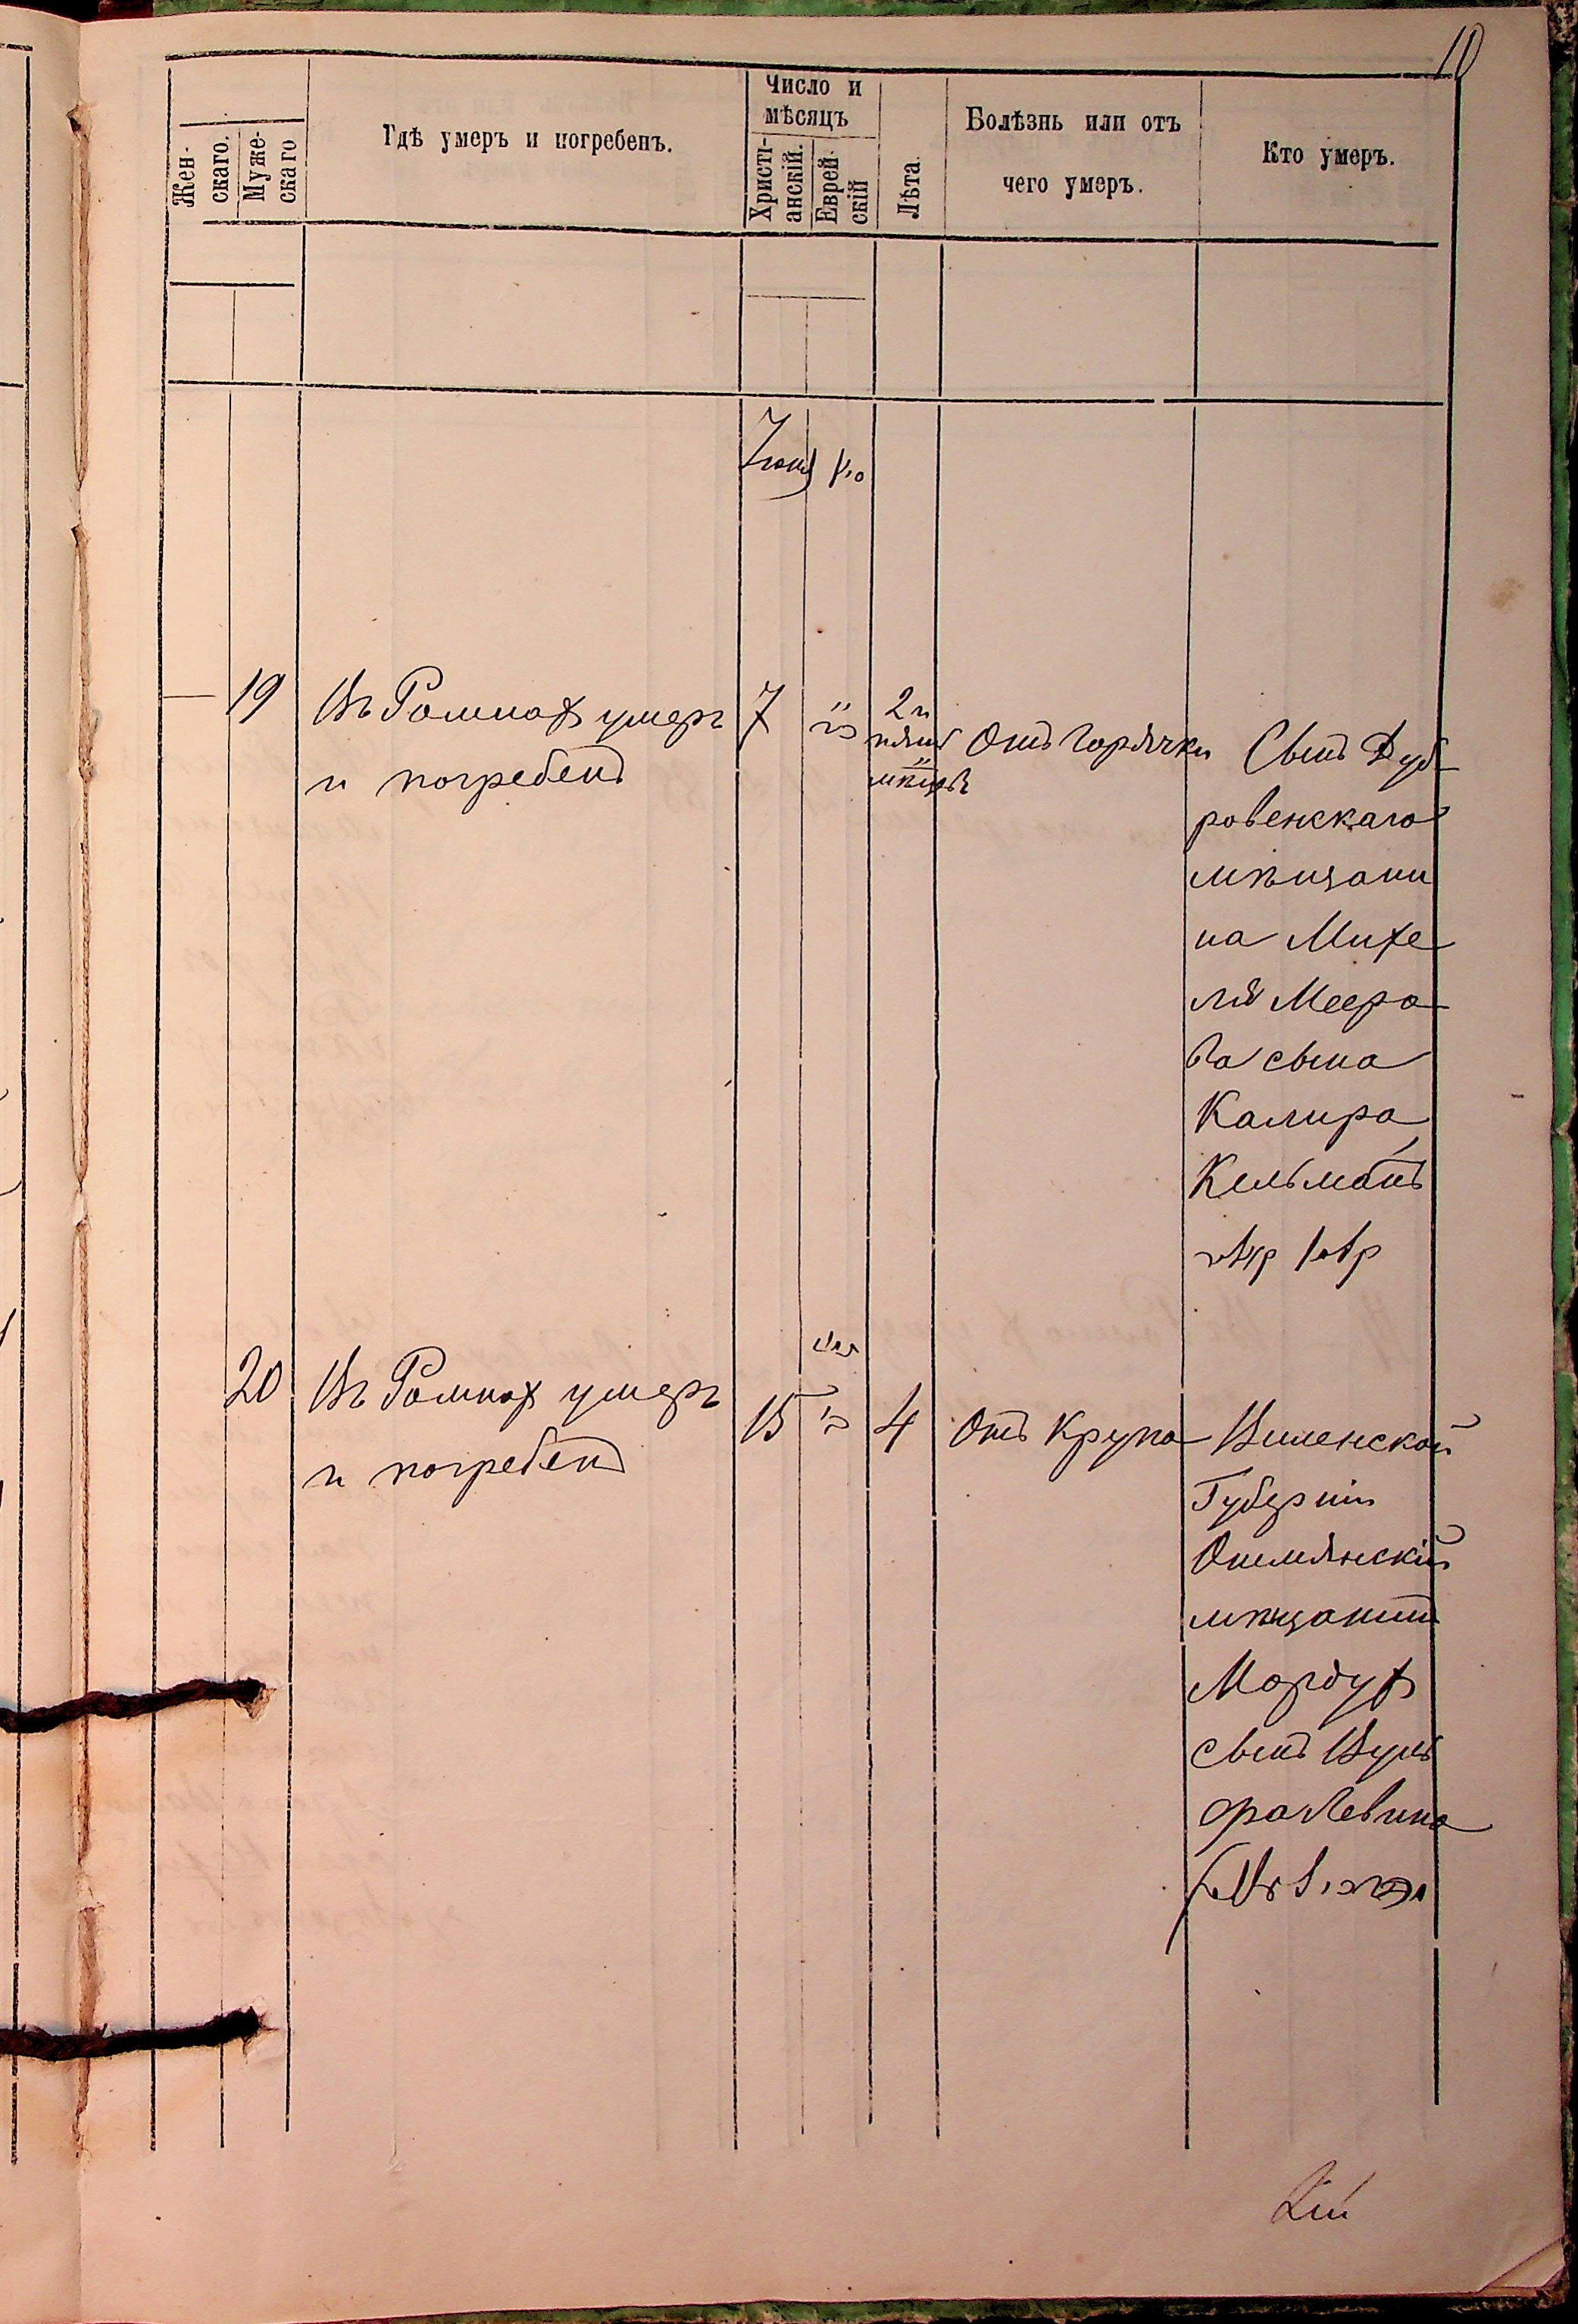 10
Жен-
скаго.
Муже-
скаго
Гдѣ умеръ и погребенъ.
Число и
мѣсяцъ
Христі-
анскій.
Еврей-
скій
Лѣта.
Болѣзнь или отъ
чего умеръ.
Кто умеръ.
Іюнь
19
Въ Ромнах умеръ
и погребенъ
7
2 и
мѣсяцъ
Отъ горячки
Сынъ Дуб-
ровенскаго
мѣщани
на Михе
ля Мееро
ва сына
Калира
Кельманъ
20
Въ Ромнах умеръ
и погребенъ
15
4
Отъ крупа
Виленской
Губерніи
Ошмянскій
мѣщанинъ
Мордух
сынъ Вуль
фа Левина